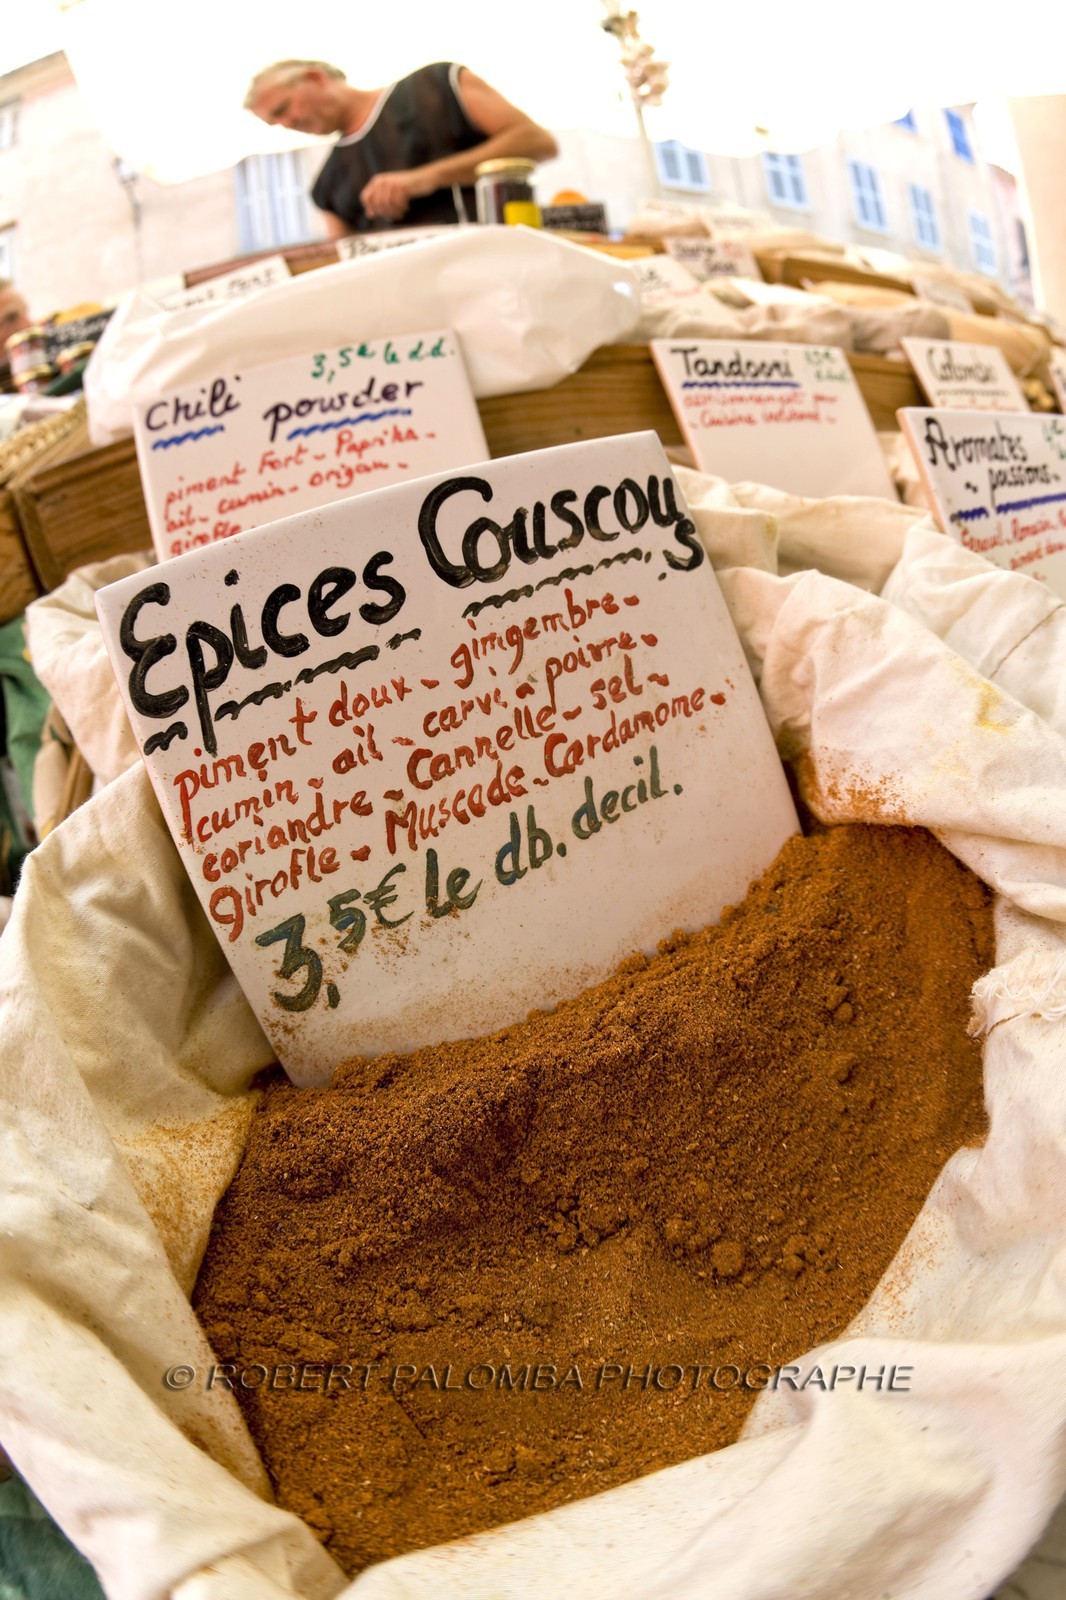 3,5€ le d.d.
Chili powder
piment Fort - Paprika -
ail - cumin - origan -
girofle -
Tandoori
Cuisine
Colombo
Aromates
poissons -
Epices Couscous
piment doux - gimgembre -
cumin - ail - carvi - poivre -
coriandre - Cannelle - sel -
girofle - Muscade - Cardamome -
3,5€ le db. decil.
© ROBERT PALOMBA PHOTOGRAPHE